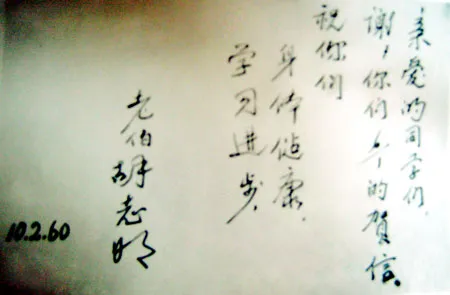 亲爱的同学们，
谢谢你们的贺信。
祝你们
身体健康，
学习进步。
老伯胡志明
10.2.60